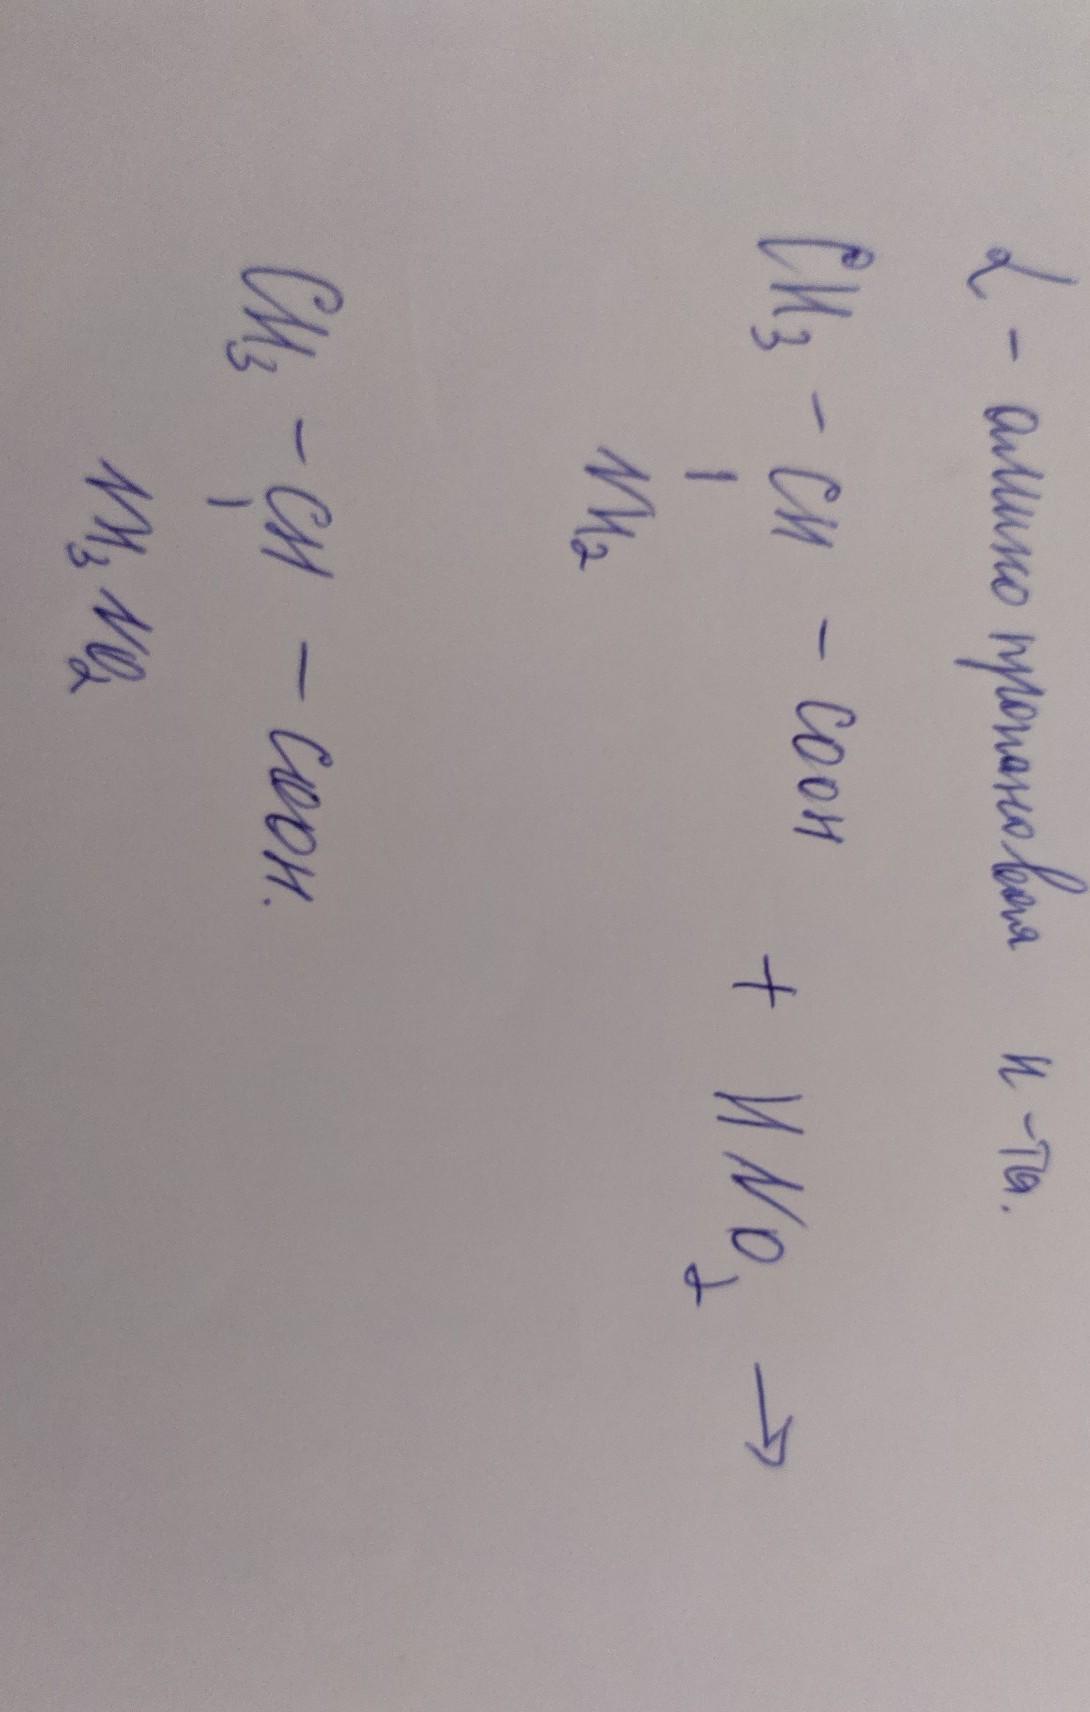 α - аминопропановая к-та.
CH₃ - CH - COOH + HNO₂ →
|
NH₂
CH₃ - CH - COOH.
|
NH₃NO₂